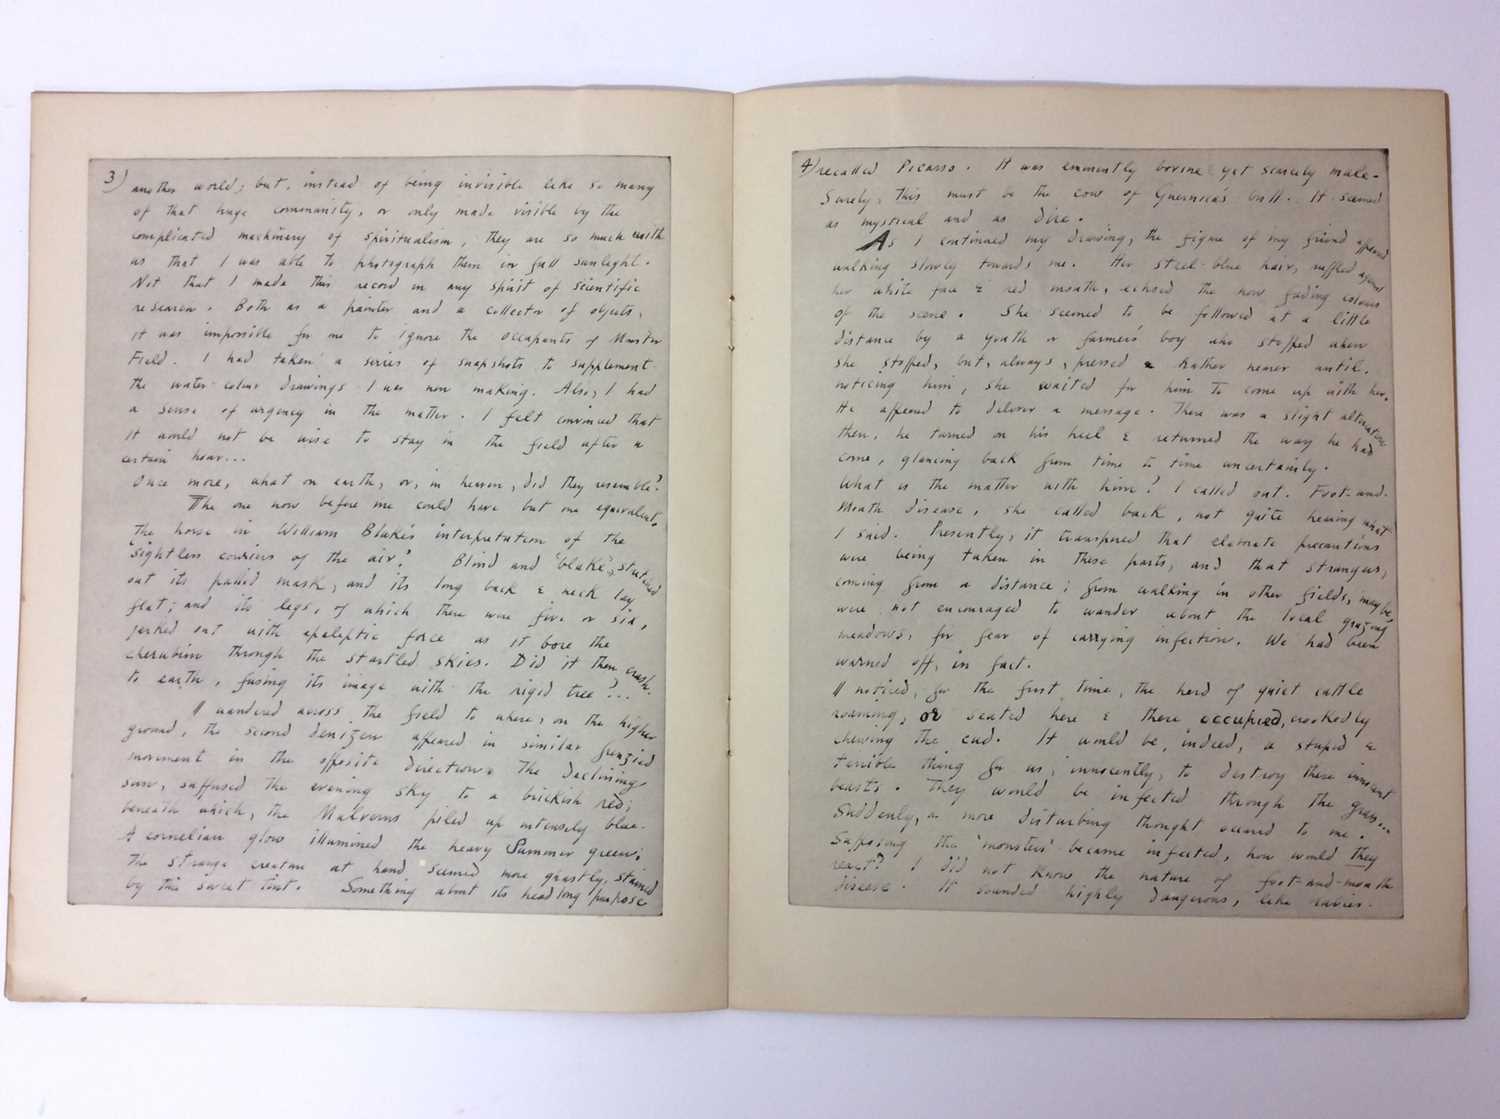 3)
another world; but, instead of being invisible like so many
of that huge community, or only made visible by the
complicated machinery of spiritualism, they are so much with
us that I was able to photograph them in full sunlight.
Not that I made this record in any spirit of scientific
research. Both as a painter and a collector of objects,
it was impossible for me to ignore the occupants of Monster
Field. I had taken a series of snapshots to supplement
the water-colour drawings I was now making. Also, I had
a sense of urgency in the matter. I felt convinced that
it would not be wise to stay in the field after a
certain hour...
Once more, what on earth, or, in heaven, did they resemble?
The one now before me could have but one equivalent,
the horse in William Blake's interpretation of the
sightless couriers of the air? Blind and 'blake', stretched
out its pallid mask, and its long back & neck lay
flat; and its legs, of which there were five or six,
jerked out with epileptic force as it bore the
cherubim through the startled skies. Did it then crash
to earth, fusing its image with the rigid tree?...
I wandered across the field to where, on the higher
ground, the second denizen appeared in similar frenzied
movement in the opposite direction. The declining
sun, suffused the evening sky to a brickish red;
beneath which, the Malverns piled up intensely blue.
A cornelian glow illumined the heavy Summer greens;
The strange creature at hand seemed more ghastly, stained
by this sweet tint. Something about its headlong purpose
4)
recalled Picasso. It was eminently bovine yet scarcely male.
Surely, this must be the cow of Guernica's bull. It seemed
as mystical and as dire.
As I continued my drawing, the figure of my friend appeared
walking slowly towards me. Her steel-blue hair, ruffled against
her white face & red mouth, echoed the now fading colours
of the scene. She seemed to be followed at a little
distance by a youth or farmer's boy who stopped when
she stopped, but, always, pressed rather nearer until,
noticing him, she waited for him to come up with her.
He appeared to deliver a message. There was a slight altercation
then, he turned on his heel & returned the way he had
come, glancing back from time to time uncertainly.
What is the matter with him? I called out. Foot-and-
Mouth disease, she called back, not quite hearing what
I said. Presently, it transpired that elaborate precautions
were being taken in these parts, and that strangers,
coming from a distance; from walking in other fields, maybe,
were not encouraged to wander about the local grazing
meadows, for fear of carrying infection. We had been
warned off, in fact.
I noticed, for the first time, the herd of quiet cattle
roaming, or seated here & there occupied, crookedly
chewing the cud. It would be, indeed, a stupid &
terrible thing for us, innocently, to destroy these innocent
beasts. They would be infected through the grass...
Suddenly, a more disturbing thought occured to me.
Supposing the 'monsters' became infected, how would they
react? I did not know the nature of foot-and-mouth
disease. It sounded highly dangerous, like rabies.